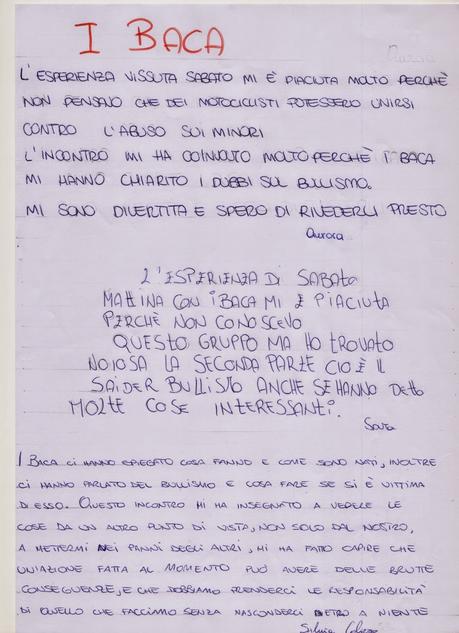 I BACA
Aurora
L'ESPERIENZA VISSUTA SABATO MI È PIACIUTA MOLTO PERCHÈ
NON PENSAVO CHE DEI MOTOCICLISTI POTESSERO UNIRSI
CONTRO L'ABUSO SUI MINORI
L'INCONTRO MI HA COINVOLTO MOLTO PERCHÈ I BACA
MI HANNO CHIARITO I DUBBI SUL BULLISMO.
MI SONO DIVERTITA E SPERO DI RIVEDERLI PRESTO
Aurora
L'ESPERIENZA DI SABATO
MATTINA CON I BACA MI È PIACIUTA
PERCHÈ NON CONOSCEVO
QUESTO GRUPPO MA HO TROVATO
NOIOSA LA SECONDA PARTE CIOÈ IL
SAIDER BULLISMO ANCHE SE HANNO DETTO
MOLTE COSE INTERESSANTI.
Sara
I BACA CI HANNO SPIEGATO COSA FANNO E COME SONO NATI, INOLTRE
CI HANNO PARLATO DEL BULLISMO E COSA FARE SE SI È VITTIMA
DI ESSO. QUESTO INCONTRO MI HA INSEGNATO A VEDERE LE
COSE DA UN ALTRO PUNTO DI VISTA, NON SOLO DAL NOSTRO,
A METTERMI NEI PANNI DEGLI ALTRI, MI HA FATTO CAPIRE CHE
UN'AZIONE FATTA AL MOMENTO PUÒ AVERE DELLE BRUTTE
CONSEGUENZE, E CHE DOBBIAMO PRENDERCI LE RESPONSABILITÀ
DI QUELLO CHE FACCIAMO SENZA NASCONDERCI DIETRO A NIENTE
Silvia